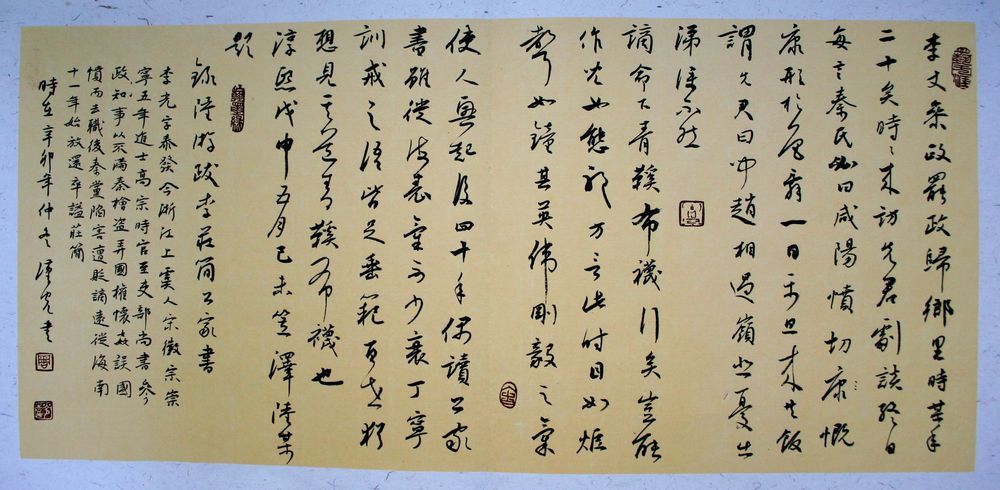 李丈參政罷政歸鄉里時某年
二十矣時々來訪先君劇談終日
每言秦氏必曰咸陽憤切康慨
康形於色辭一日平旦來共飯
謂先君曰聞趙相過嶺悲憂出
涕僕不然
謫命下青鞵布襪行矣豈能
作兒女態耶方言此時目如炬
聲如鐘其英偉剛毅之氣
使人興起後四十年偶讀公家
書雖徙海表氣不少衰丁寧
訓戒之語皆足垂範百世猶
想見其道青鞵布襪也
淳熙戊申五月己未笠澤陸某
題
錄陸游跋李莊簡公家書
李光字泰發今浙江上虞人宋徽宗崇
寧五年進士高宗時官至吏部尚書參
政知事以不滿秦檜盜弄國權懷姦誤國
憤而去職後秦黨陷害遭貶謫遠徙海南
十一年始放還卒謚莊簡
時在辛卯年仲冬